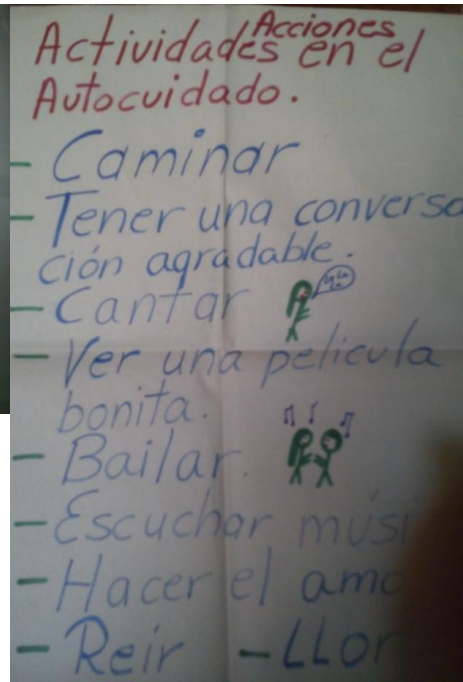 Acciones
Actividades en el
Autocuidado.
- Caminar
- Tener una conversa
ción agradable.
- Cantar
- Ver una pelicula
bonita.
- Bailar.
- Escuchar músi
- Hacer el amo
- Reír - LLor